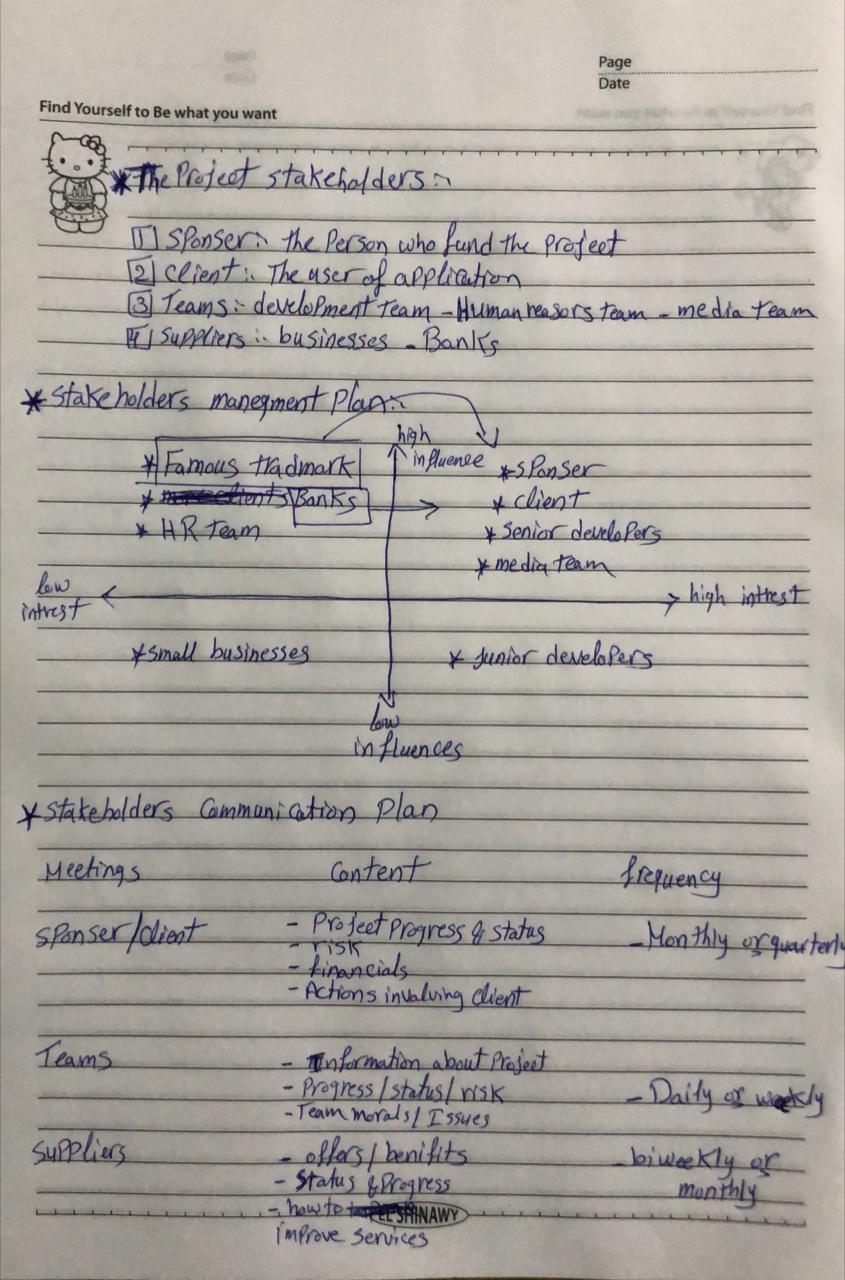 Page
Date
Find Yourself to Be what you want
* The Project stakeholders :-
1 SPonser :- the Person who fund the Project
2 client :- The user of application
3 Teams :- development team - Human reasors team - media team
4 Suppliers :- businesses - Banks
* Stakeholders manegment Plan :-
high
influence
* Famous tradmark
* Banks
* HR team
* sPonser
* client
* senior developers
* media team
low
intrest
high intrest
* small businesses
* Junior developers
low
influences
* stakeholders Communication Plan
Meetings Content frequency
sPonser/client - Project Progress & status - Monthly or quarterly
- risk
- financials
- Actions involving client
Teams - Information about Project
- Progress/status/risk - Daily or weekly
- Team morals/Issues
Suppliers - offers/benifits - biweekly or
- Status & Progress monthly
- how to
EL SHINAWY
improve services